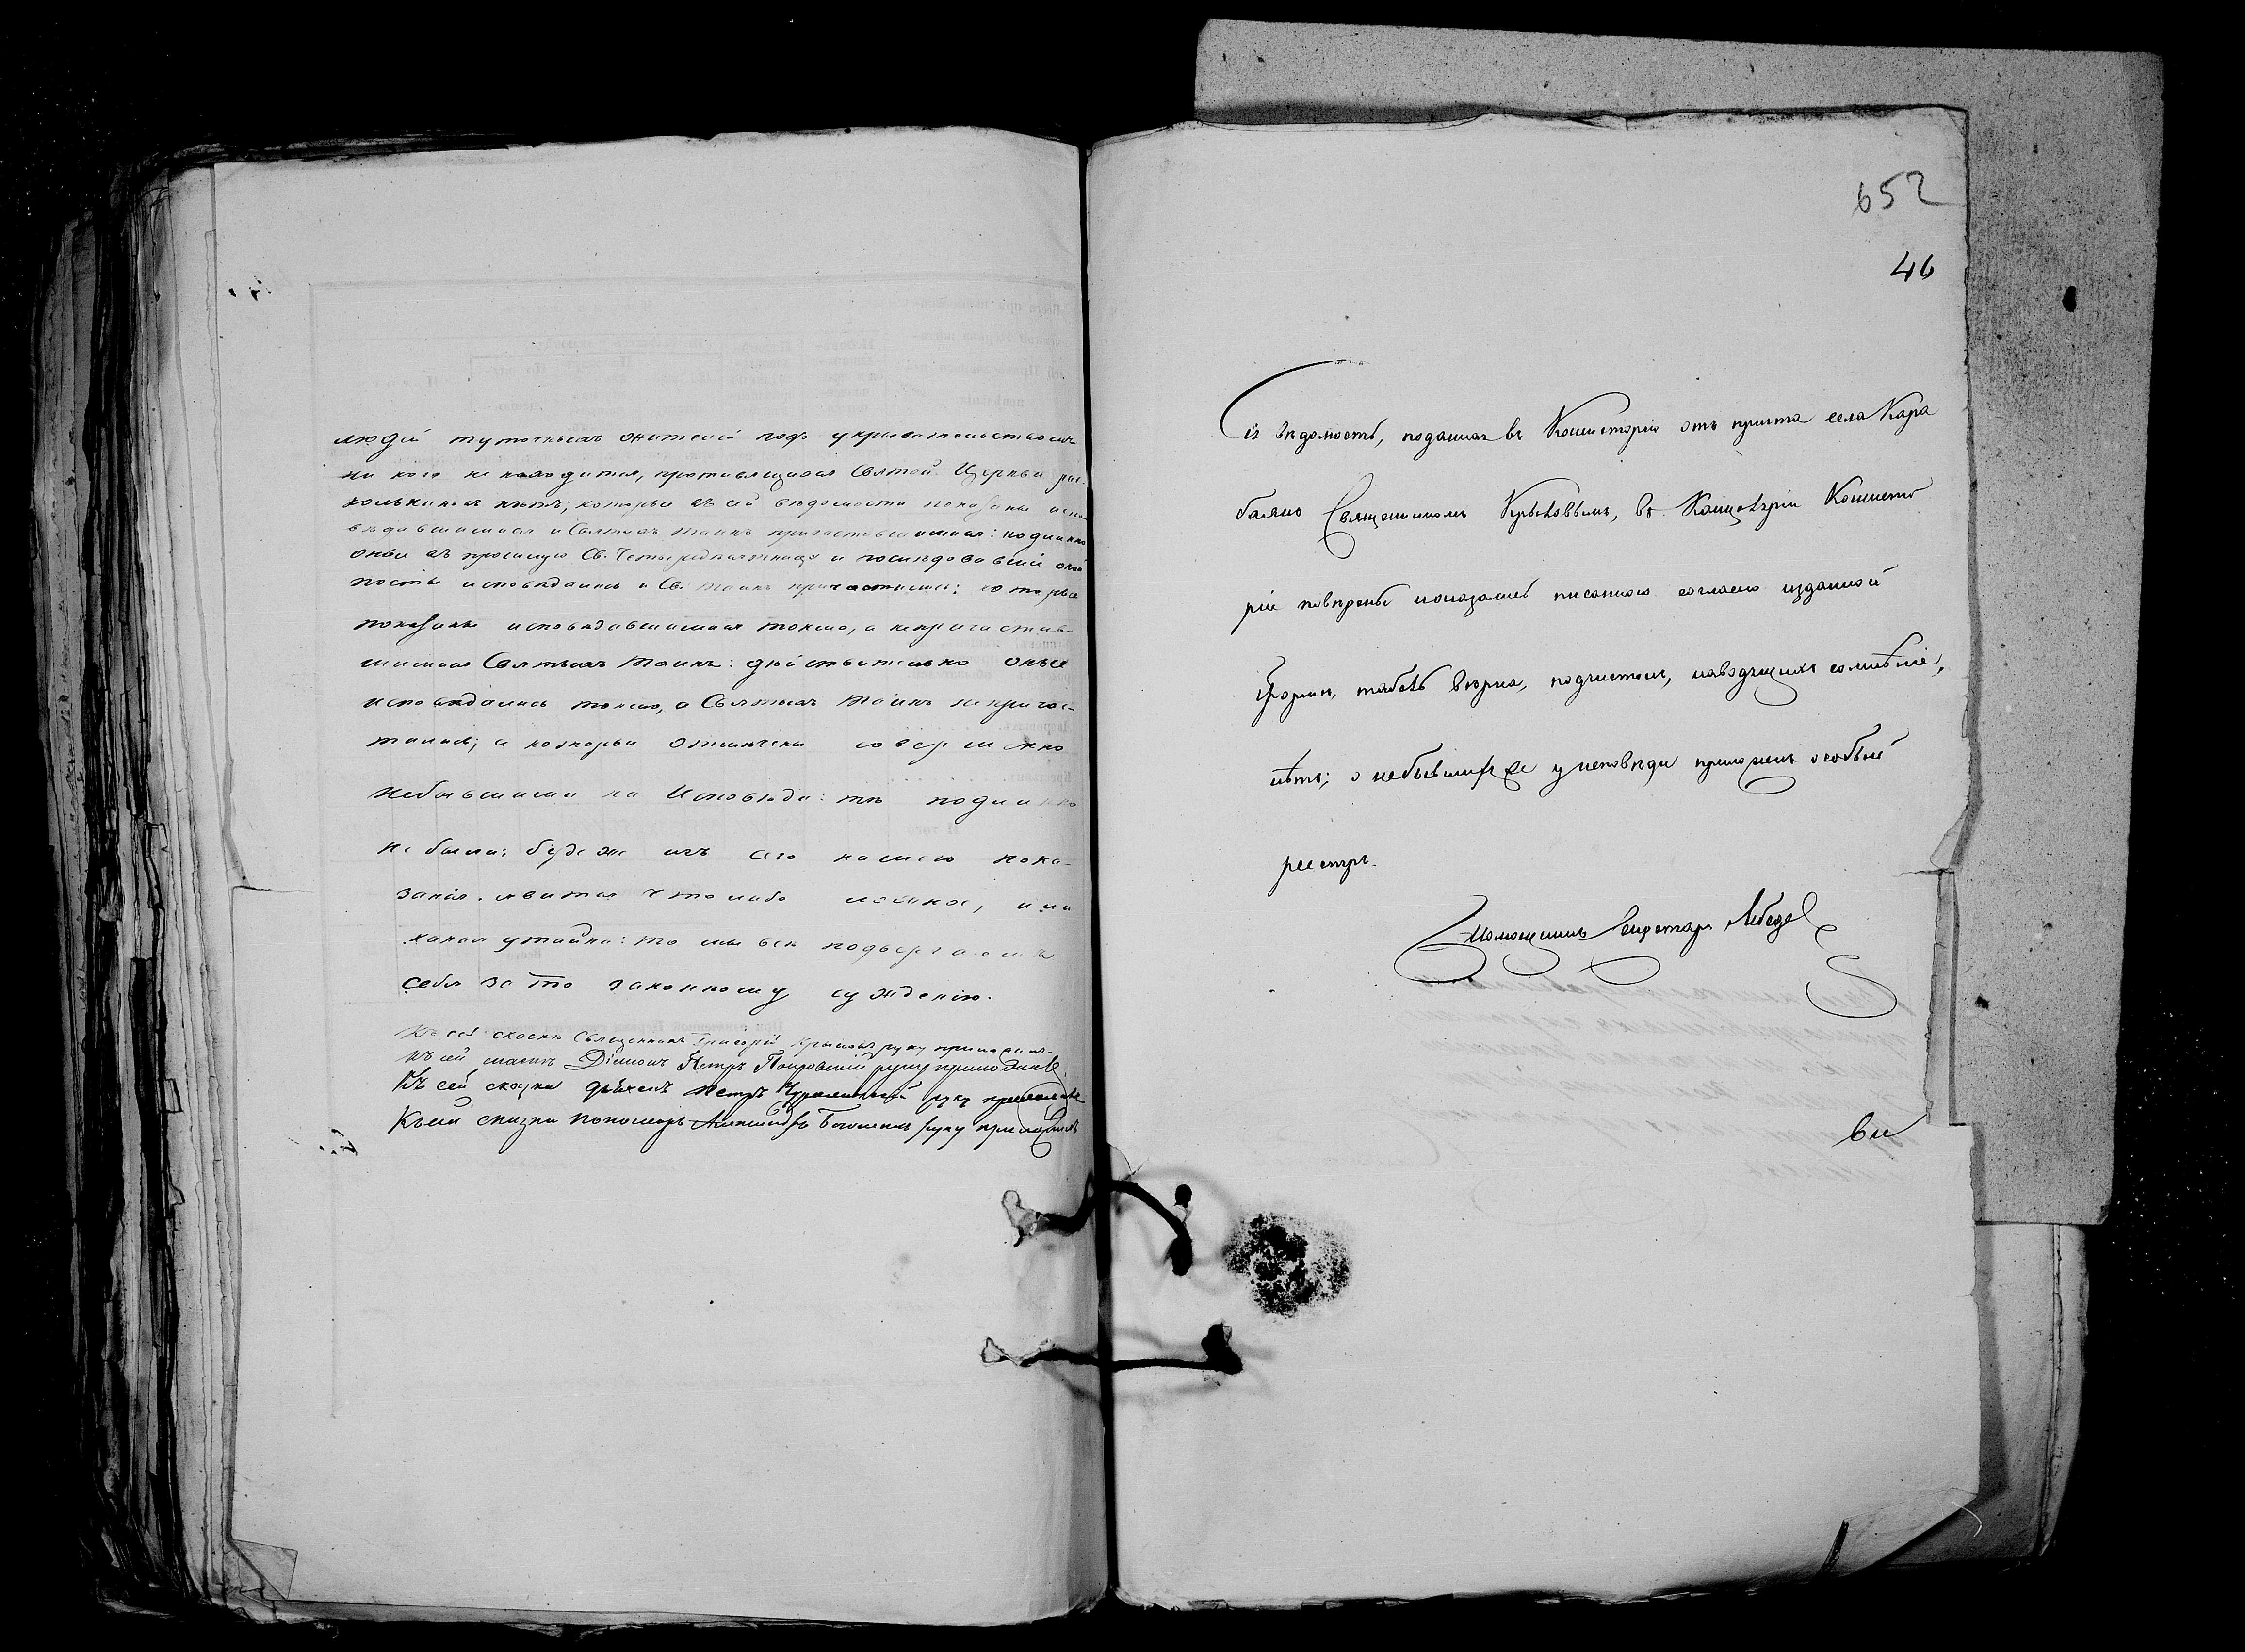 людей тутошныхъ жителей подъ укрывательствомъ
ни кого не находится, противящихся Святой Церкви рас-
кольниковъ нѣтъ; которыи въ сей вѣдомости показаны испо
вѣдавшимися и Святыхъ Таинъ причастившимися: подлинно
оныи въ прошлую Св. Четыредесятницу и последовавшіи
посты исповѣдались и Св. Таинъ причастились; которые
показаны исповѣдавшимися токмо, а непричастив-
шимися Святыхъ Таинъ: дѣйствительно оные
исповѣдались токмо, а Святыхъ Таинъ непричас-
тились; а которыи отмѣчены совершенно
небывшими на Исповѣди: тѣ подлинно
не были: буде же изъ сего нашего пока-
занія. явится что либо ложное, или
какая утайка: то мы всѣ подвергаемъ
себя за то законному суждению.
Къ сей сказкѣ Священникъ Григорій Крыловъ руку приложилъ.
Къ сей Діаконъ Петръ Покровскій руку приложилъ.
Къ сей сказки дьячекъ Петръ руку приложилъ
Къ сей сказки пономарь Александръ руку приложилъ
652
46
Сія вѣдомость, поданная въ Консисторію отъ причта села Кара
баяно Священникомъ Крыловымъ, въ Канцеляріи Консисто
ріи повѣрены показалась писанною согласно изданной
Формы, табель вѣрна, подчистокъ, наводящихъ сомнѣніе,
нѣтъ; о небывшихъ у исповѣди приложенъ особый
реестръ.
Помощникъ Секретаря Лебедев